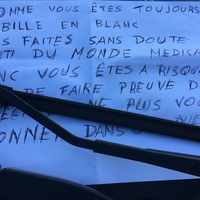 OMME VOUS ÊTES TOUJOURS
BILLE EN BLANC
S FAITES SANS DOUTE
TI DU MONDE MEDICA
NC VOUS ÊTES A RISQU
DE FAIRE PREUVE D
NE PLUS VO
ONNER DANS